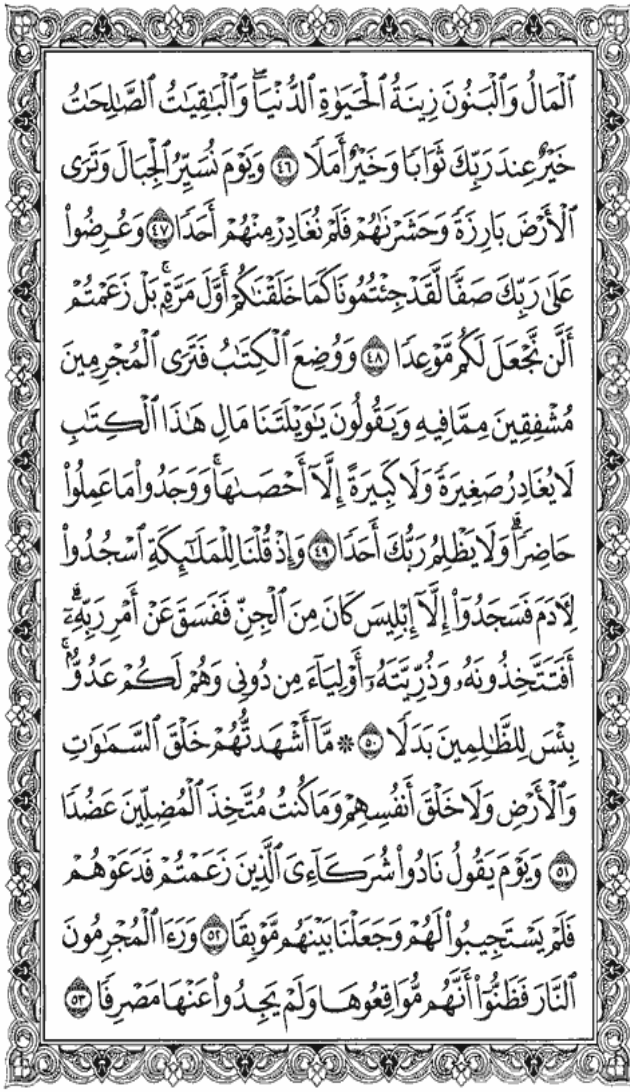 ٱلْمَالُ وَٱلْبَنُونَ زِينَةُ ٱلْحَيَوٰةِ ٱلدُّنْيَا ۖ وَٱلْبَـٰقِيَـٰتُ ٱلصَّـٰلِحَـٰتُ
خَيْرٌ عِندَ رَبِّكَ ثَوَابًا وَخَيْرٌ أَمَلًا ٤٦ وَيَوْمَ نُسَيِّرُ ٱلْجِبَالَ وَتَرَى
ٱلْأَرْضَ بَارِزَةً وَحَشَرْنَـٰهُمْ فَلَمْ نُغَادِرْ مِنْهُمْ أَحَدًا ٤٧ وَعُرِضُوا۟
عَلَىٰ رَبِّكَ صَفًّا لَّقَدْ جِئْتُمُونَا كَمَا خَلَقْنَـٰكُمْ أَوَّلَ مَرَّةٍۭ ۚ بَلْ زَعَمْتُمْ
أَلَّن نَّجْعَلَ لَكُم مَّوْعِدًا ٤٨ وَوُضِعَ ٱلْكِتَـٰبُ فَتَرَى ٱلْمُجْرِمِينَ
مُشْفِقِينَ مِمَّا فِيهِ وَيَقُولُونَ يَـٰوَيْلَتَنَا مَالِ هَـٰذَا ٱلْكِتَـٰبِ
لَا يُغَادِرُ صَغِيرَةً وَلَا كَبِيرَةً إِلَّآ أَحْصَىٰهَا ۚ وَوَجَدُوا۟ مَا عَمِلُوا۟
حَاضِرًا ۗ وَلَا يَظْلِمُ رَبُّكَ أَحَدًا ٤٩ وَإِذْ قُلْنَا لِلْمَلَـٰٓئِكَةِ ٱسْجُدُوا۟
لِـَٔادَمَ فَسَجَدُوٓا۟ إِلَّآ إِبْلِيسَ كَانَ مِنَ ٱلْجِنِّ فَفَسَقَ عَنْ أَمْرِ رَبِّهِۦٓ ۗ
أَفَتَتَّخِذُونَهُۥ وَذُرِّيَّتَهُۥٓ أَوْلِيَآءَ مِن دُونِى وَهُمْ لَكُمْ عَدُوٌّۢ ۚ
بِئْسَ لِلظَّـٰلِمِينَ بَدَلًا ٥٠ ۞ مَّآ أَشْهَدتُّهُمْ خَلْقَ ٱلسَّمَـٰوَٰتِ
وَٱلْأَرْضِ وَلَا خَلْقَ أَنفُسِهِمْ وَمَا كُنتُ مُتَّخِذَ ٱلْمُضِلِّينَ عَضُدًا
٥١ وَيَوْمَ يَقُولُ نَادُوا۟ شُرَكَآءِىَ ٱلَّذِينَ زَعَمْتُمْ فَدَعَوْهُمْ
فَلَمْ يَسْتَجِيبُوا۟ لَهُمْ وَجَعَلْنَا بَيْنَهُم مَّوْبِقًا ٥٢ وَرَءَا ٱلْمُجْرِمُونَ
ٱلنَّارَ فَظَنُّوٓا۟ أَنَّهُم مُّوَاقِعُوهَا وَلَمْ يَجِدُوا۟ عَنْهَا مَصْرِفًا ٥٣